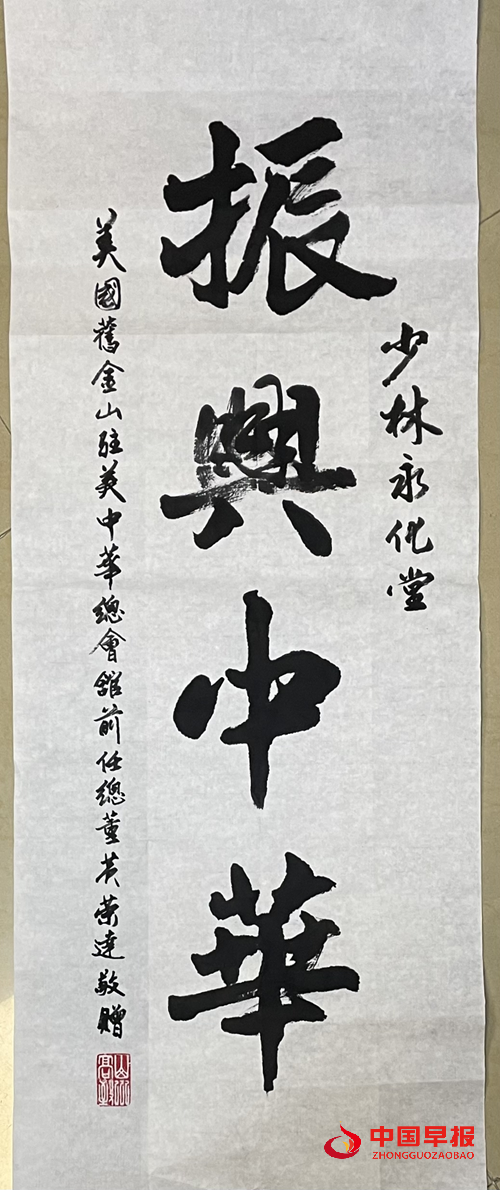 少林永化堂
振興中華
美國舊金山駐美中華總會館前任總董黃榮達敬贈
中国早报
ZHONGGUOZAOBAO